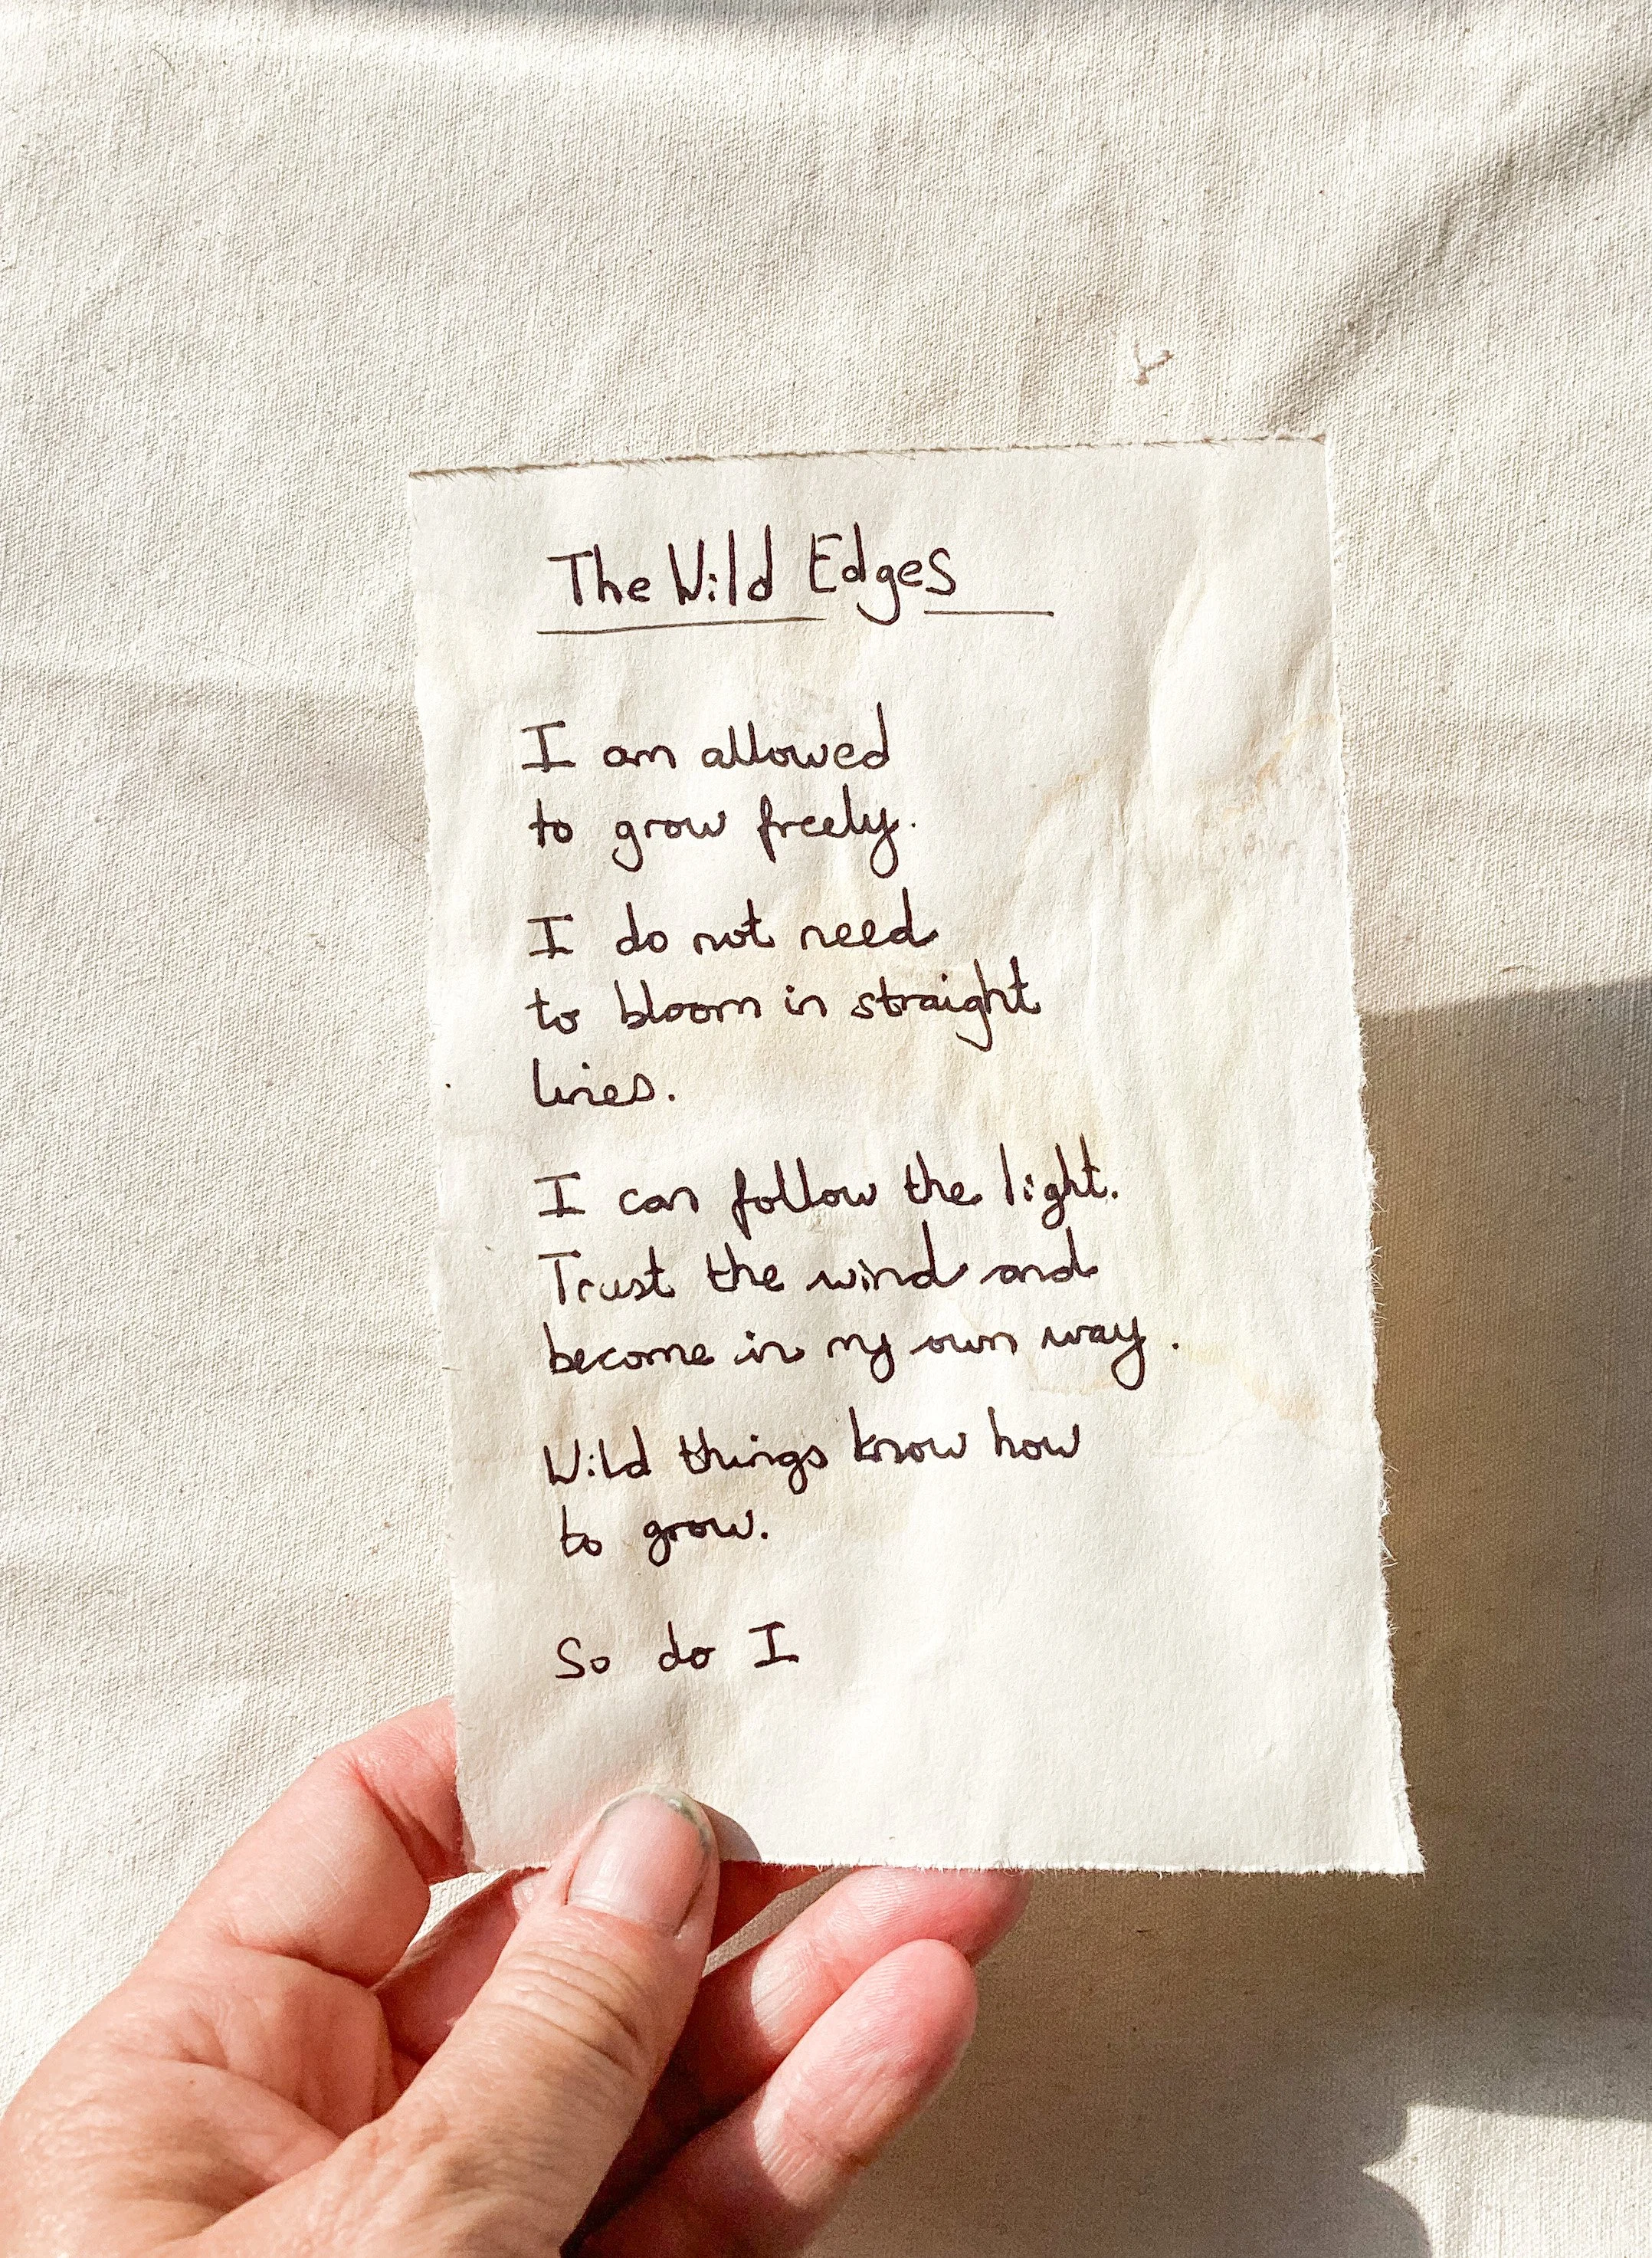 The Wild Edges
I am allowed
to grow freely.
I do not need
to bloom in straight
lines.
I can follow the light.
Trust the wind and
become in my own way.
Wild things know how
to grow.
So do I